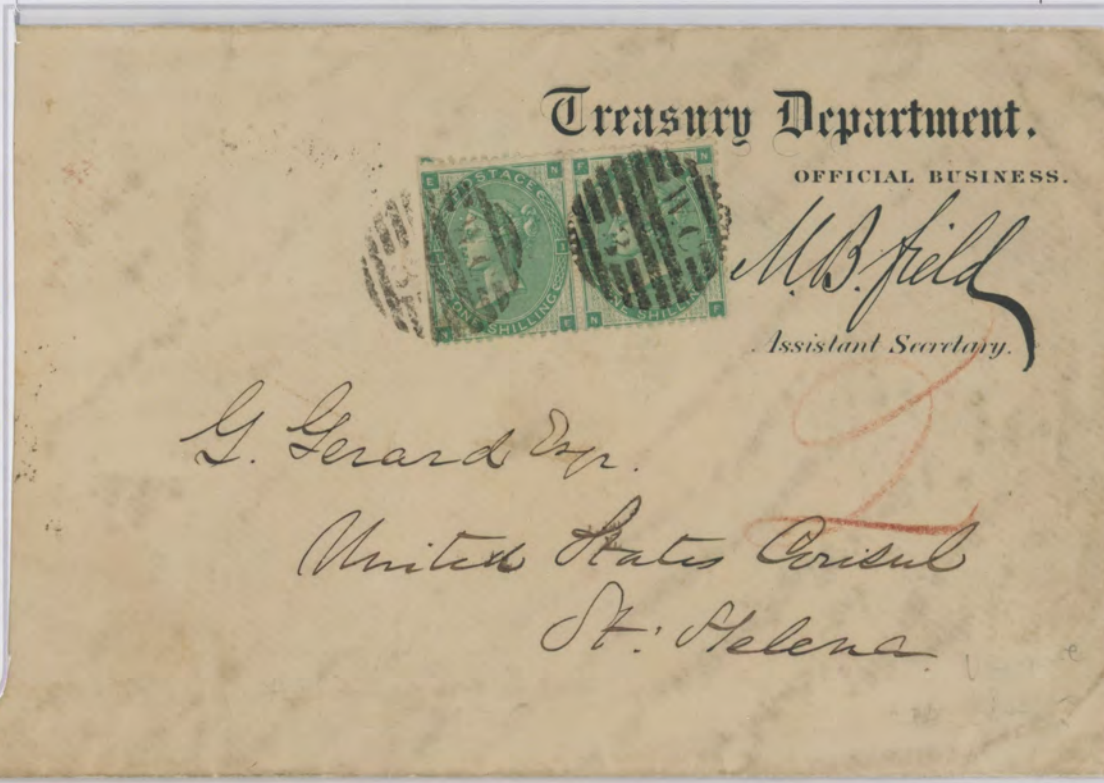 Treasury Department.
OFFICIAL BUSINESS.
M.B. Field
Assistant Secretary.
E N F N
POSTAGE
WC
2
ONE SHILLING
NE SHILLIN
N E N F
2
G. Gerard Esqr.
United States Consul
St. Helena